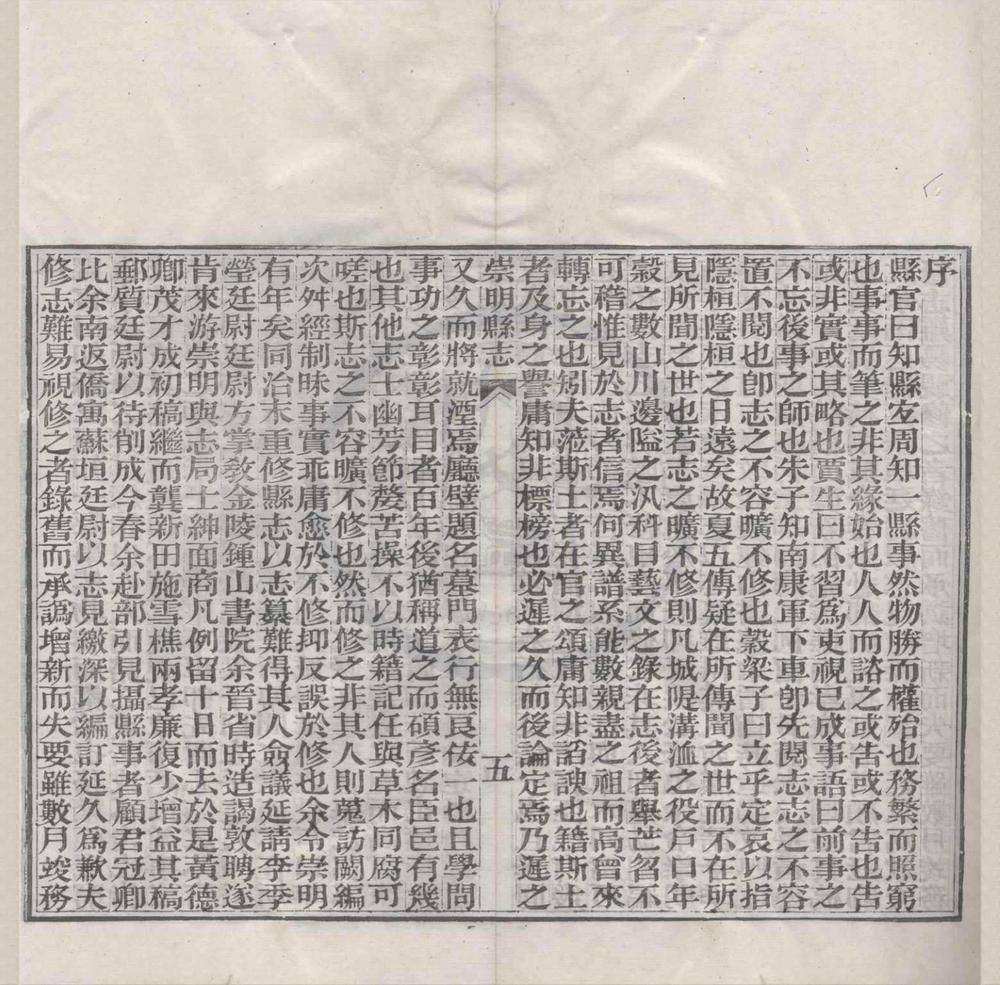 序
縣官曰知縣宐周知一縣事然物勝而權殆也務繁而照窮
也事事而筆之非其緣始也人人而諮之或告或不告也告
或非實或其略也賈生曰不習爲吏視已成事語曰前事之
不忘後事之師也朱子知南康軍下車卽先閱志志之不容
置不閱也卽志之不容曠不修也穀梁子曰立乎定哀以指
隱桓隱桓之日遠矣故夏五傳疑在所傳聞之世而不在所
見所聞之世也若志之曠不修則凡城隄溝洫之役戸口年
穀之數山川邊隘之汛科目藝文之錄在志後者舉芒芴不
可稽惟見於志者信焉何異譜系能數親盡之祖而高曾來
轉忘之也矧夫蒞斯土者在官之頌庸知非諂諛也籍斯土
者及身之譽庸知非標榜也必遲之久而後論定焉乃遲之
崇明縣志
五
又久而將就湮焉廳壁題名墓門表行無良佐一也且學問
事功之彰彰耳目者百年後猶稱道之而碩彥名臣邑有幾
也其他志士幽芳節嫠苦操不以時籍記任與草木同腐可
嗟也斯志之不容曠不修也然而修之非其人則蒐訪闕編
次舛經制昧事實乖庸愈於不修抑反誤於修也余令崇明
有年矣同治末重修縣志以志纂難得其人僉議延請李季
瑩廷尉廷尉方掌敎金陵鍾山書院余晉省時造謁敦聘遂
肯來游崇明與志局士紳面商凡例留十日而去於是黃德
卿茂才成初稿繼而龔新田施雪樵兩孝廉復少增益其稿
郵質廷尉以待削成今春余赴部引見攝縣事者顧君冠卿
比余南返僑寓蘇垣廷尉以志見繳深以編訂延久爲歉夫
修志難易視修之者錄舊而承譌增新而失要雖數月竣務